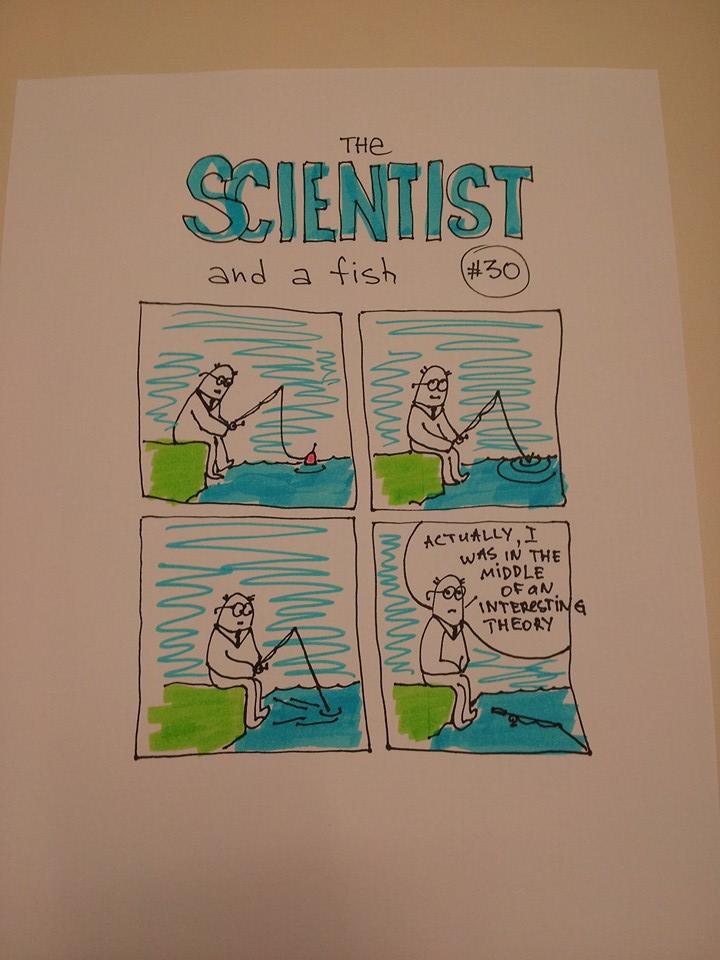 THe
SCIENTIST
and a fish
#30
ACTUALLY, I
WAS IN THE
MIDDLE
OF aN
INTEReSTING
THEORY